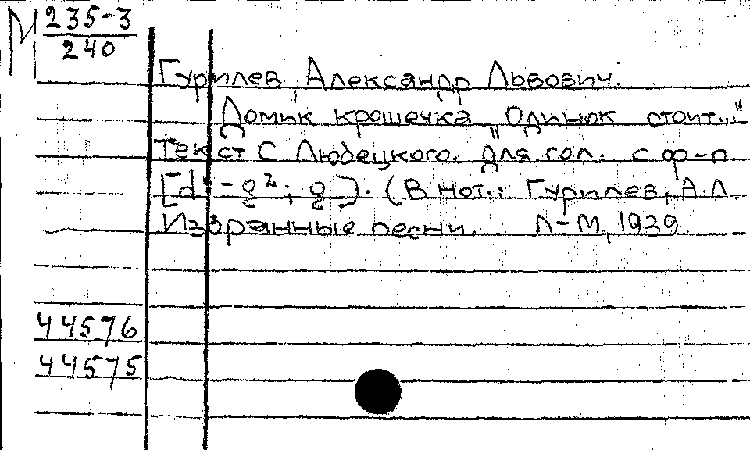 М 235-3
240
Гурилев, Александр Львович.
Домик крошечка "Одинок стоит..."
Текст С Любецкого. Для гол. с ф-п
[d¹ - g²; g]. (В нот.: Гурилев, А.Л.
Избранные песни. Л-М, 1939.
44576
44575